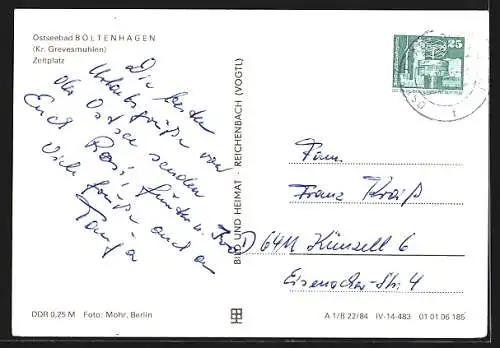 Ostseebad BOLTENHAGEN
(Kr. Grevesmühlen)
Zeltplatz
Die besten
Urlaubsgrüße von
der Ostsee senden
Euch Rosi, Günter u.
Viele Grüße auch an
Tanja
BILD UND HEIMAT - REICHENBACH (VOGTL)
25
Fam.
Franz
D 6411 Künzell 6
Eisenacher-Str. 4
DDR 0,25 M Foto: Mohr, Berlin
A 1/B 22/84 IV-14-483 01 01 06 185